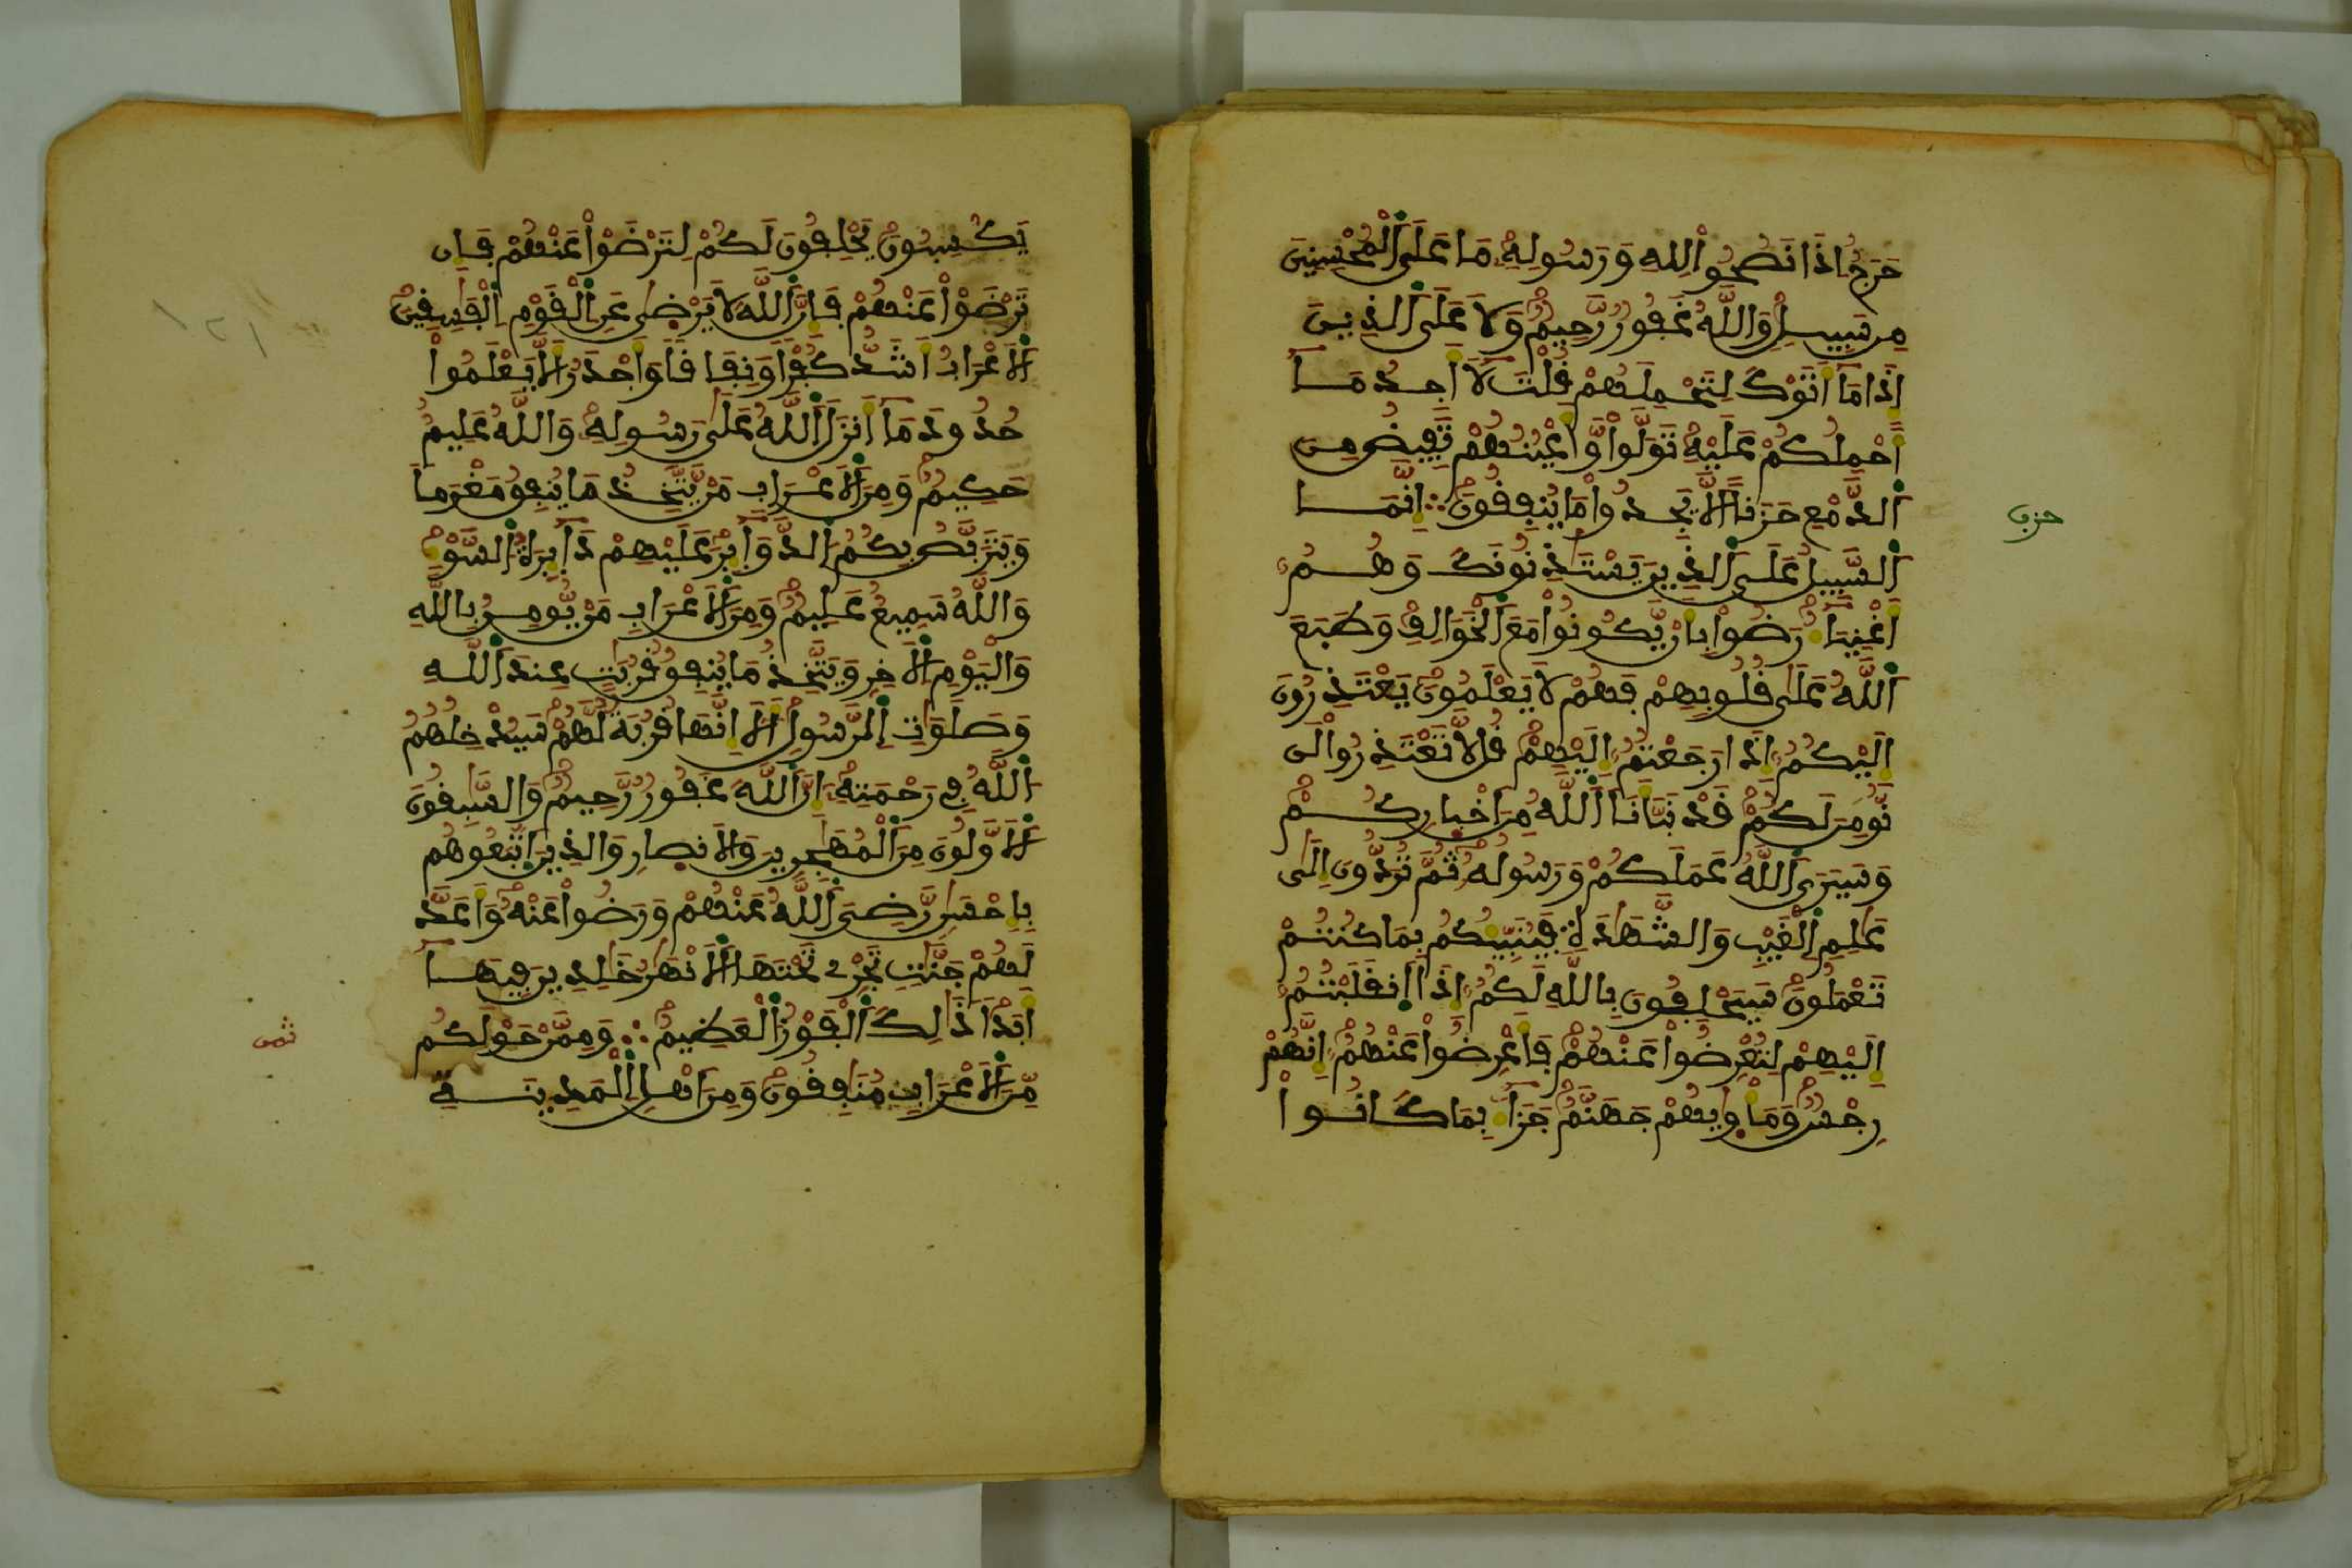 حَرَجٌ اِذَا نَصَحُواْ لِلهِ وَرَسُولِهِۦ مَا عَلَى اَ۬لْمُحْسِنِينَ
مِن سَبِيلٖ وَاللَّهُ غَفُورٞ رَّحِيمٞ وَلَا عَلَى اَ۬لذِينَ
إِذَا مَآ أَتَوْكَ لِتَحْمِلَهُمْ قُلْتَ لَآ أَجِدُ مَآ
أَحْمِلُكُمْ عَلَيْهِ تَوَلَّواْ وَّأَعْيُنُهُمْ تَفِيضُ مِنَ
اَ۬لدَّمْعِ حَزَناً اَلَّا يَجِدُواْ مَا يُنفِقُونَ ؞ إِنَّمَا
اَ۬لسَّبِيلُ عَلَى اَ۬لذِينَ يَسْتَٰذِنُونَكَ وَهُمُۥٓ
أَغْنِيَآءُ رَضُواْ بِأَنْ يَّكُونُواْ مَعَ اَ۬لْخَوَالِفِ وَطَبَعَ
اَ۬للَّهُ عَلَىٰ قُلُوبِهِمْ فَهُمْ لَا يَعْلَمُونَ يَعْتَذِرُونَ
إِلَيْكُمُۥٓ إِذَا رَجَعْتُمُۥٓ إِلَيْهِمْ قُل لَّا تَعْتَذِرُواْ لَن
نُّومِنَ لَكُمْ قَدْ نَبَّأَنَا اَ۬للَّهُ مِنَ اَخْبارِكُمْ
وَسَيَرَى اَ۬للَّهُ عَمَلَكُمْ وَرَسُولُهُۥ ثُمَّ تُرَدُّونَ إِلَىٰ
عَٰلِمِ اِ۬لْغَيْبِ وَالشَّهَٰدَةِ فَيُنَبِّئُكُم بِمَا كُنتُمْ
تَعْمَلُونَ سَيَحْلِفُونَ بِاللَّهِ لَكُمُۥٓ إِذَا اَ۪نقَلَبْتُمُۥٓ
إِلَيْهِمْ لِتُعْرِضُواْ عَنْهُمْ فَأَعْرِضُواْ عَنْهُمُۥٓ إِنَّهُمْ
رِجْسٞ وَمَأْوِيٰهُمْ جَهَنَّمُ جَزَآءَۢ بِمَا كَانُواْ
حزب
يَكْسِبُونَ يَحْلِفُونَ لَكُمْ لِتَرْضَوْاْ عَنْهُمْ فَإِن
تَرْضَوْاْ عَنْهُمْ فَإِنَّ اَ۬للَّهَ لَا يَرْضَىٰ عَنِ اِ۬لْقَوْمِ اِ۬لْفَٰسِقِينَ
اَ۬لَاعْرَابُ أَشَدُّ كُفْراٗ وَنِفَاقاٗ وَأَجْدَرُ أَلَّا يَعْلَمُواْ
حُدُودَ مَآ أَنزَلَ اَ۬للَّهُ عَلَىٰ رَسُولِهِۦ وَاللَّهُ عَلِيمٌ
حَكِيمٞ وَمِنَ اَ۬لَاعْرَابِ مَنْ يَّتَّخِذُ مَا يُنفِقُ مَغْرَماٗ
وَيَتَرَبَّصُ بِكُمُ اُ۬لدَّوَآئِرَ عَلَيْهِمْ دَآئِرَةُ اُ۬لسَّوْءِ
وَاللَّهُ سَمِيعٌ عَلِيمٞ وَمِنَ اَ۬لَاعْرَابِ مَنْ يُّومِنُ بِاللَّهِ
وَالْيَوْمِ اِ۬لَاخِرِ وَيَتَّخِذُ مَا يُنفِقُ قُرُبَٰتٍ عِندَ اَ۬للَّهِ
وَصَلَوَٰتِ اِ۬لرَّسُولِ أَلَآ إِنَّهَا قُرُبَةٞ لَّهُمْ سَيُدْخِلُهُمُ
اُ۬للَّهُ فِي رَحْمَتِهِۦٓ إِنَّ اَ۬للَّهَ غَفُورٞ رَّحِيمٞ وَالسَّٰبِقُونَ
اَ۬لَاوَّلُونَ مِنَ اَ۬لْمُهَٰجِرِينَ وَالَانصارِ وَالذِينَ اَ۪تَّبَعُوهُم
بِإِحْسَٰنٖ رَّضِيَ اَ۬للَّهُ عَنْهُمْ وَرَضُواْ عَنْهُ وَأَعَدَّ
لَهُمْ جَنَّٰتٖ تَجْرِے تَحْتَهَا اَ۬لَانْهَٰرُ خَٰلِدِينَ فِيهَآ
أَبَداٗ ذَٰلِكَ اَ۬لْفَوْزُ اُ۬لْعَظِيمُ ؞ وَمِمَّنْ حَوْلَكُم
مِّنَ اَ۬لَاعْرَابِ مُنَٰفِقُونَ وَمِنَ اَهْلِ اِ۬لْمَدِينَةِ
ثمن
١٢١